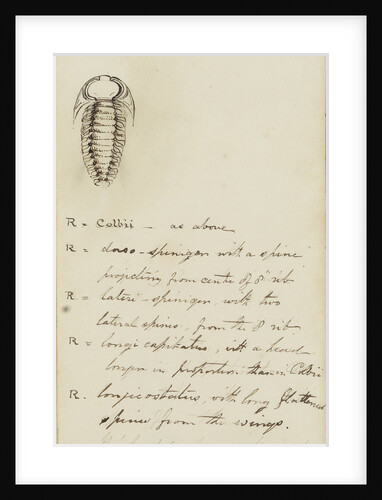 R = Colbii — as above
R = dorso-spinigen with a spine
projecting from centre of 8" rib
R = lateri-spinigen, with two
lateral spines, from the 8 rib
R = longi capitatus, with a head
longer in proportion than in Colbii
R. longicostatus, with long flattened
spines from the wings.